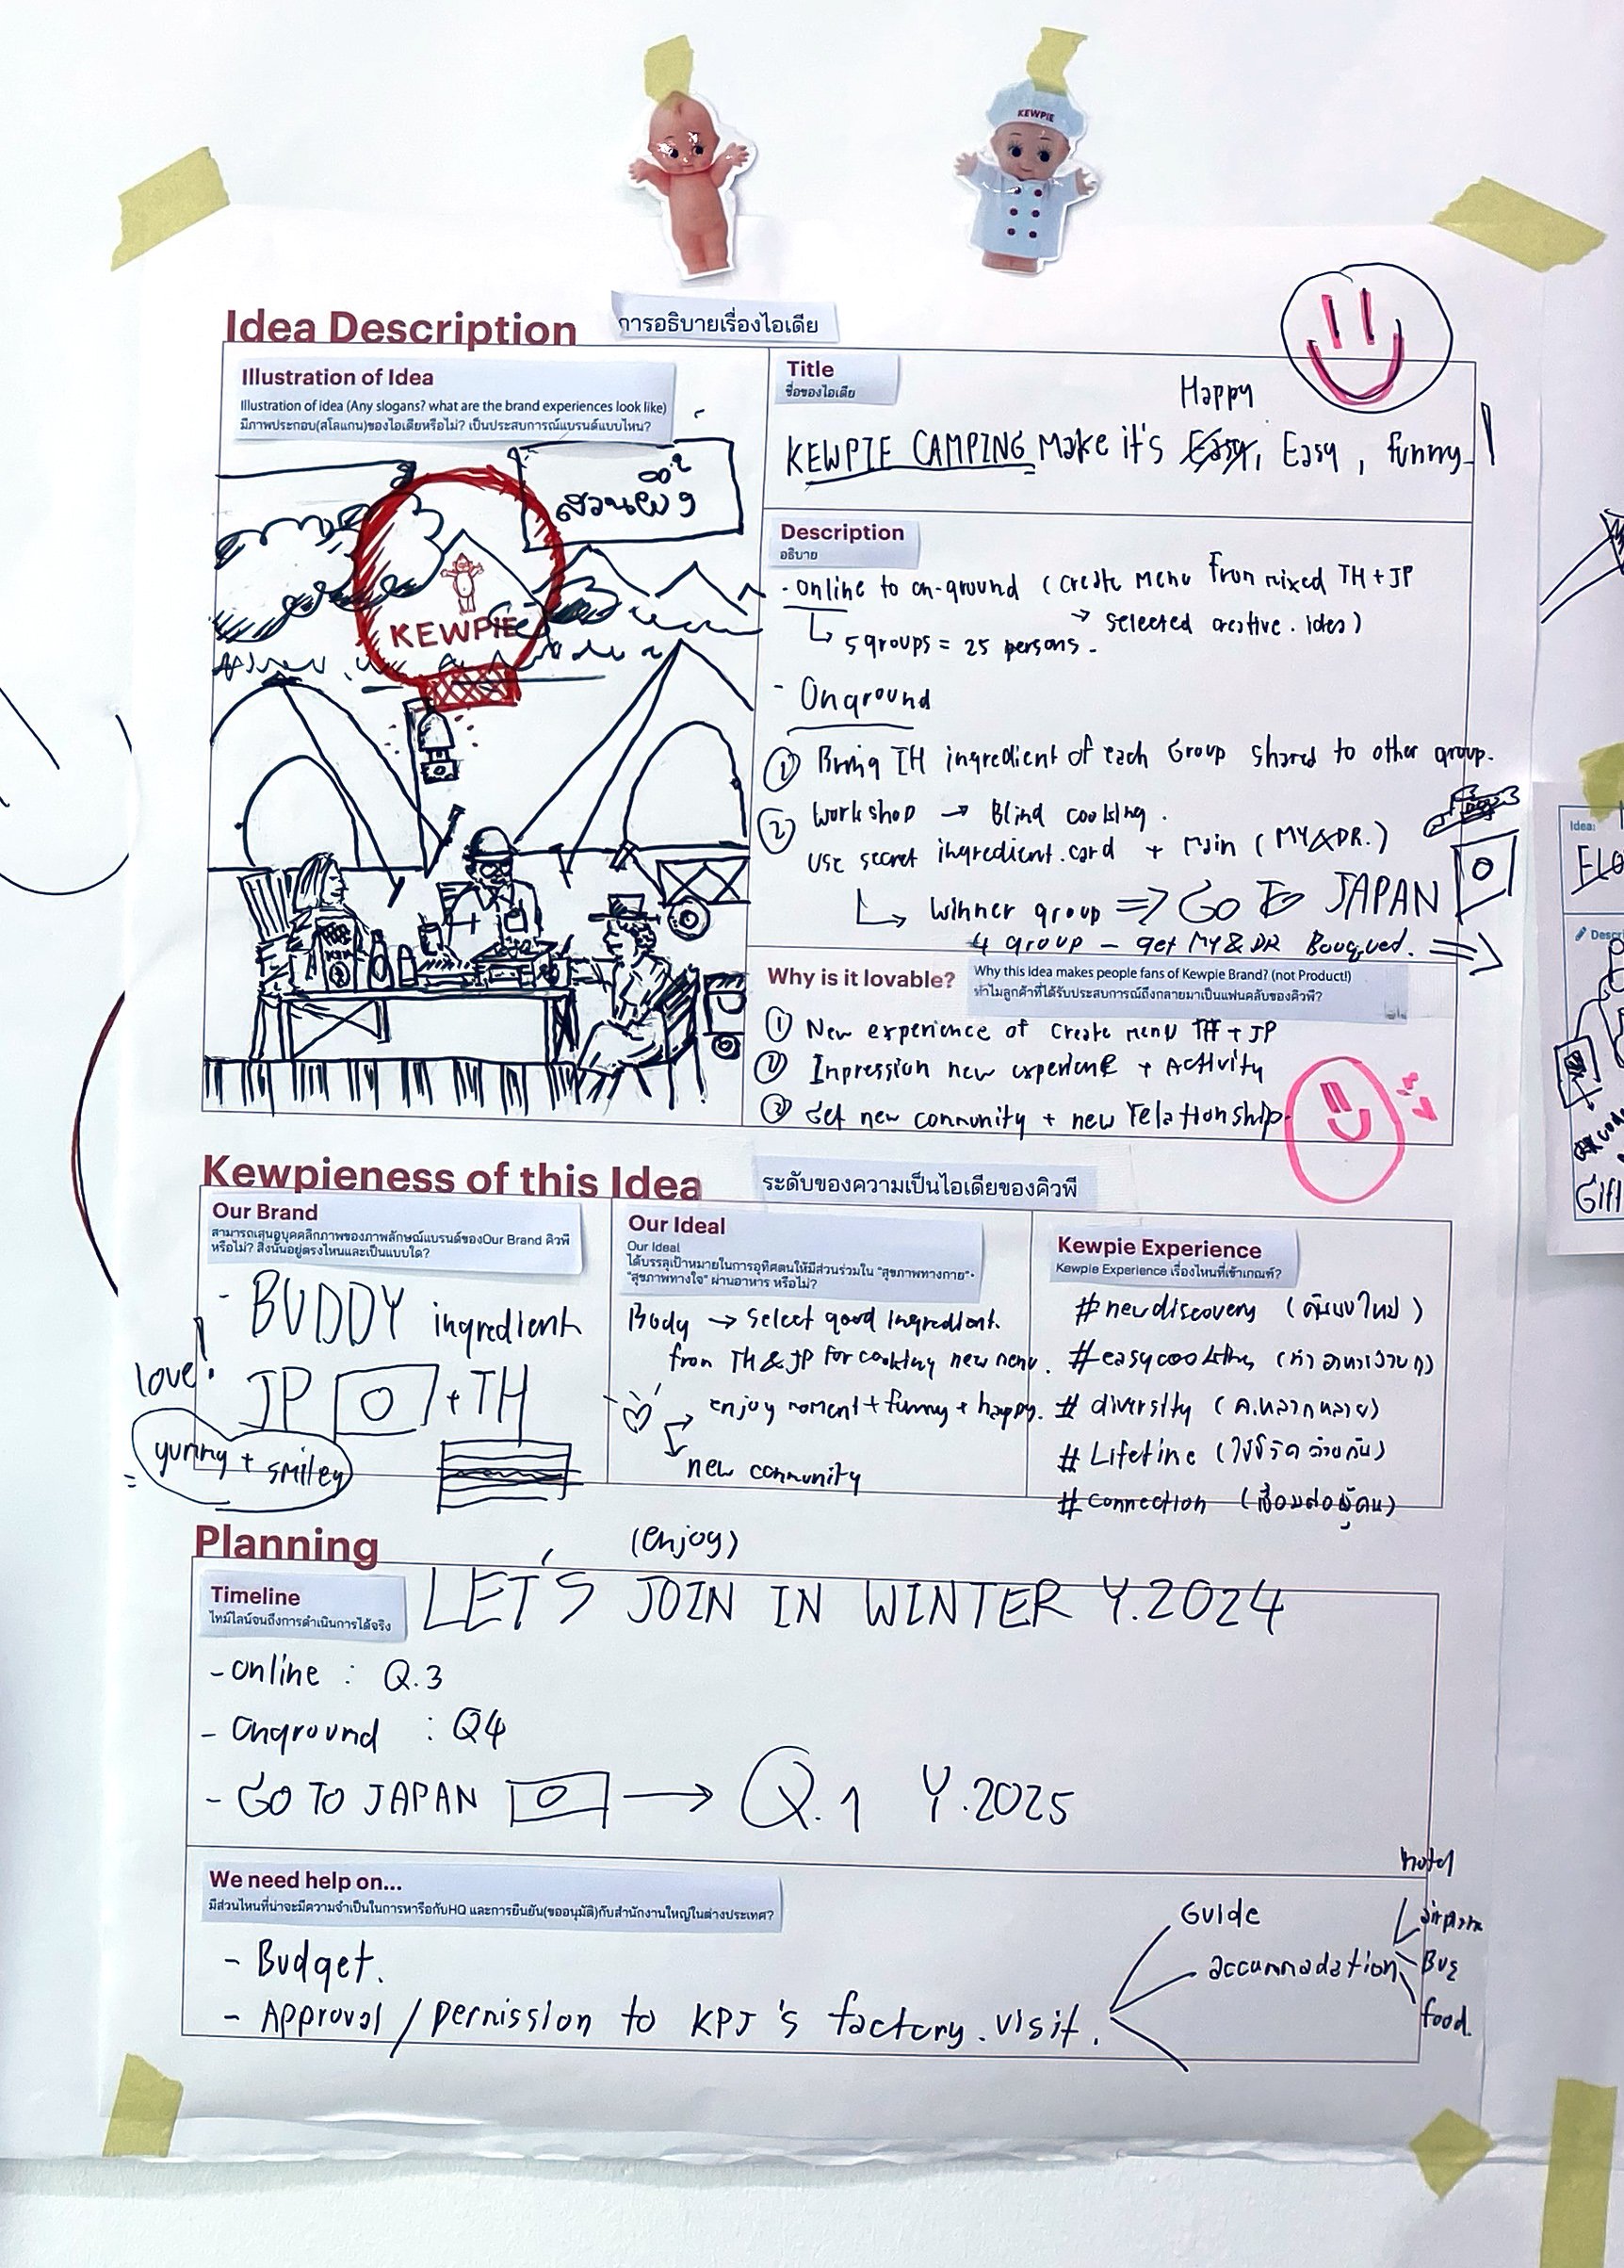 KEWPIE
Idea Description
การอธิบายเรื่องไอเดีย
Illustration of Idea
Illustration of idea (Any slogans? what are the brand experiences look like)
มีภาพประกอบ(สโลแกน)ของไอเดียหรือไม่? เป็นประสบการณ์แบรนด์แบบไหน?
สวนผึ้ง
KEWPIE
Title
ชื่อของไอเดีย
Happy
KEWPIE CAMPING Make it's Easy, Easy, funny!
Description
อธิบาย
- online to on-ground (create menu from mixed TH + JP
→ selected creative. idea)
5 groups = 25 persons.
- Onground
① Bring TH ingredient of each Group shared to other group.
② Workshop → Blind cooking.
use secret ingredient.card + Main (MY&DR.)
Winner group => GO TO JAPAN
4 group - get MY&DR Bouqued. =>
Why is it lovable?
Why this idea makes people fans of Kewpie Brand? (not Product!)
ทำไมลูกค้าที่ได้รับประสบการณ์ถึงกลายมาเป็นแฟนคลับของคิวพี?
① New experience of create menu TH + JP
② Inpression new experience + Activity
③ Get new community + new relationship.
Kewpieness of this Idea
ระดับของความเป็นไอเดียของคิวพี
Our Brand
สามารถเสนอบุคคลิกภาพของภาพลักษณ์แบรนด์ของOur Brand คิวพี
หรือไม่? สิ่งนั้นอยู่ตรงไหนและเป็นแบบใด?
- BUDDY ingredient
love!
JP + TH
= yummy + smiley
Our Ideal
Our Ideal
ได้บรรลุเป้าหมายในการอุทิศตนให้มีส่วนร่วมใน "สุขภาพทางกาย"·
"สุขภาพทางใจ" ผ่านอาหาร หรือไม่?
Body → Select good ingredient.
from TH & JP for cooking new menu.
→ enjoy moment + funny + happy.
new community
Kewpie Experience
Kewpie Experience เรื่องไหนที่เข้าเกณฑ์?
#newdiscovery (ค้นพบใหม่)
#easycooking (ทำอาหารง่ายๆ)
# diversity (ค.หลากหลาย)
# Lifetime (ใช้ชีวิตด้วยกัน)
# connection (เชื่อมต่อผู้คน)
Planning
(enjoy)
Timeline
ไทม์ไลน์จนถึงการดำเนินการได้จริง
LET'S JOIN IN WINTER Y.2024
- online : Q.3
- Onground : Q4
- GO TO JAPAN → Q.1 Y.2025
We need help on...
มีส่วนไหนที่น่าจะมีความจำเป็นในการหารือกับHQ และการยืนยัน(ขออนุมัติ)กับสำนักงานใหญ่ในต่างประเทศ?
- Budget.
- Approval / permission to KPJ's factory.visit.
Guide
accummadation
hotel
airplane
Bus
food.
Idea:
Descri